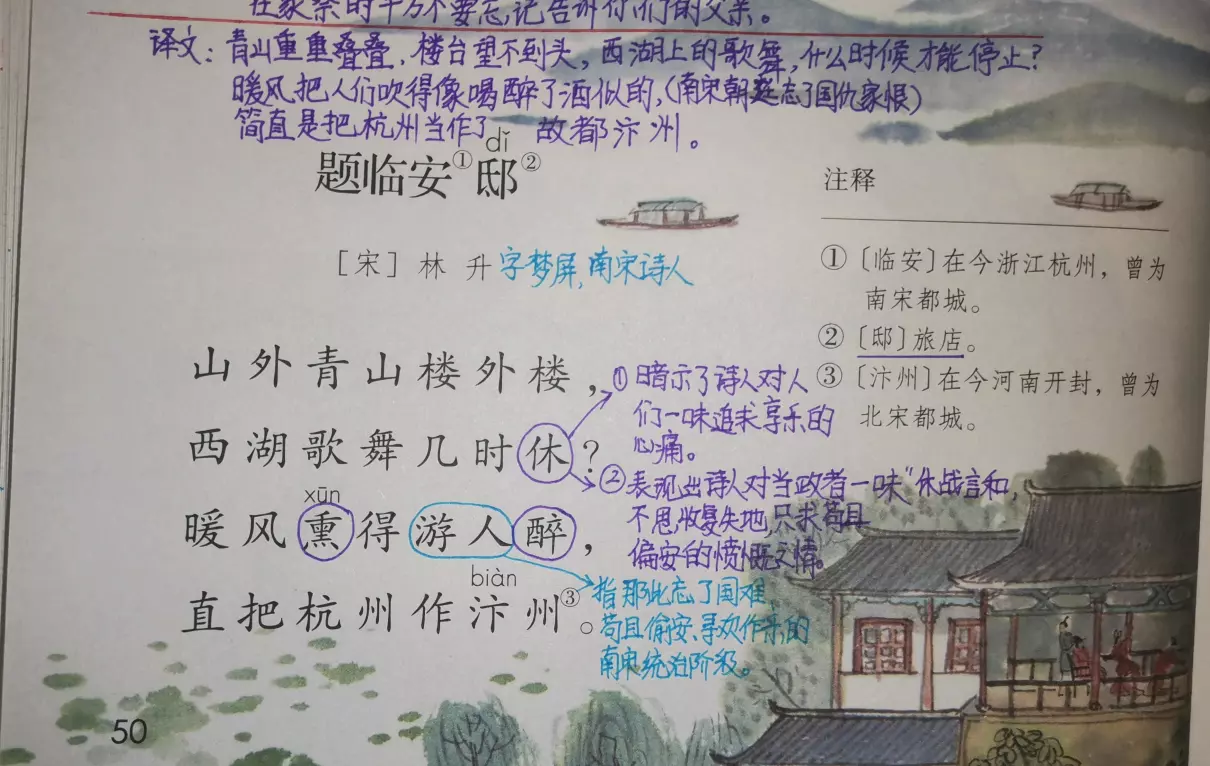 在家祭的千万不要忘记告诉你们的父亲。
译文：青山重重叠叠，楼台望不到头，西湖上的歌舞，什么时候才能停止？
暖风把人们吹得像喝醉了酒似的，（南宋朝廷忘了国仇家恨）
简直是把杭州当作了 故都汴州。
dǐ
题临安①邸②
[宋] 林 升 字梦屏，南宋诗人
山外青山楼外楼，
西湖歌舞几时休？
xūn
暖风熏得游人醉，
biàn
直把杭州作汴州③。
①暗示了诗人对人
们一味追求享乐的
心痛。
②表现出诗人对当政者一味“休战言和，
不思收复失地，只求苟且
偏安的愤慨之情。
指那些忘了国难，
苟且偷安、寻欢作乐的
南宋统治阶级。
注释
①〔临安〕在今浙江杭州，曾为
南宋都城。
②〔邸〕旅店。
③〔汴州〕在今河南开封，曾为
北宋都城。
50